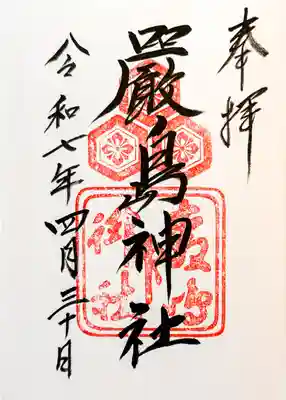 奉拝
嚴島神社
令和七年四月三十日
嚴島
神社